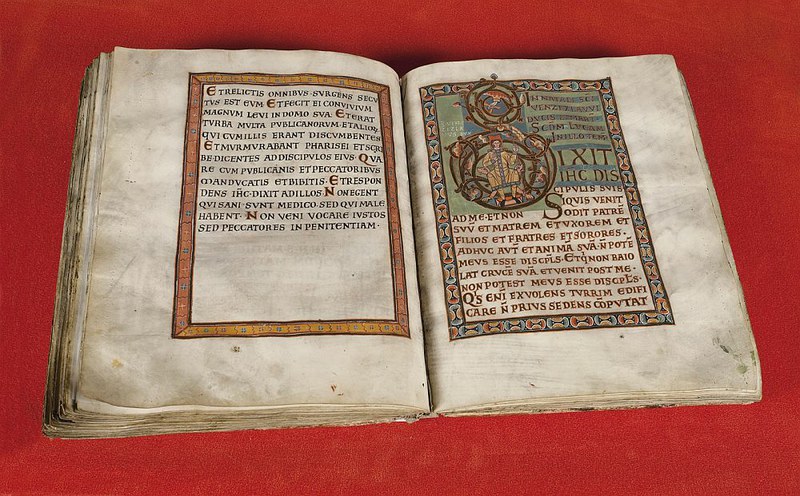 ET RELICTIS OMNIBUS · SURGENS SECU
TUS EST EUM · ET FECIT EI CONVIVIUM
MAGNUM LEVI IN DOMO SUA · ET ERAT
TURBA MULTA PUBLICANORUM · ET ALIOR
QUI CUM ILLIS ERANT DISCUMBENTES
ET MURMURABANT PHARISEI ET SCRI
BE · DICENTES AD DISCIPULOS EIUS · QUA
RE CUM PUBLICANIS ET PECCATORIBUS
MANDUCATIS ET BIBITIS · ET RESPON
DENS IHC · DIXIT AD ILLOS · NON EGENT
QUI SANI SUNT MEDICO · SED QUI MALE
HABENT · NON VENI VOCARE IUSTOS
SED PECCATORES IN PENITENTIAM ·
DUCIS
SCDM · LUCAM
IN ILLO TEMP
IXIT
IHC DIS
CIPULIS SUIS
SIQUIS VENIT
AD ME · ET NON ODIT PATRĒ
SVV ET MATREM ET UXOREM ET
FILIOS ET FRATRES ET SORORES ·
ADHUC AUT ET ANIMĀ SUĀ · N̄ POTĒ
MEUS ESSE DISCPLS · ET Q̄ NON BAIO
LAT CRUCĒ SUĀ ET VENIT POST ME ·
NON POTEST MEUS ESSE DISCPLS ·
QS ENĪ EX VOLENS TURRIM EDIFI
CARE N̄ PRIUS SEDENS CŌPUTAT